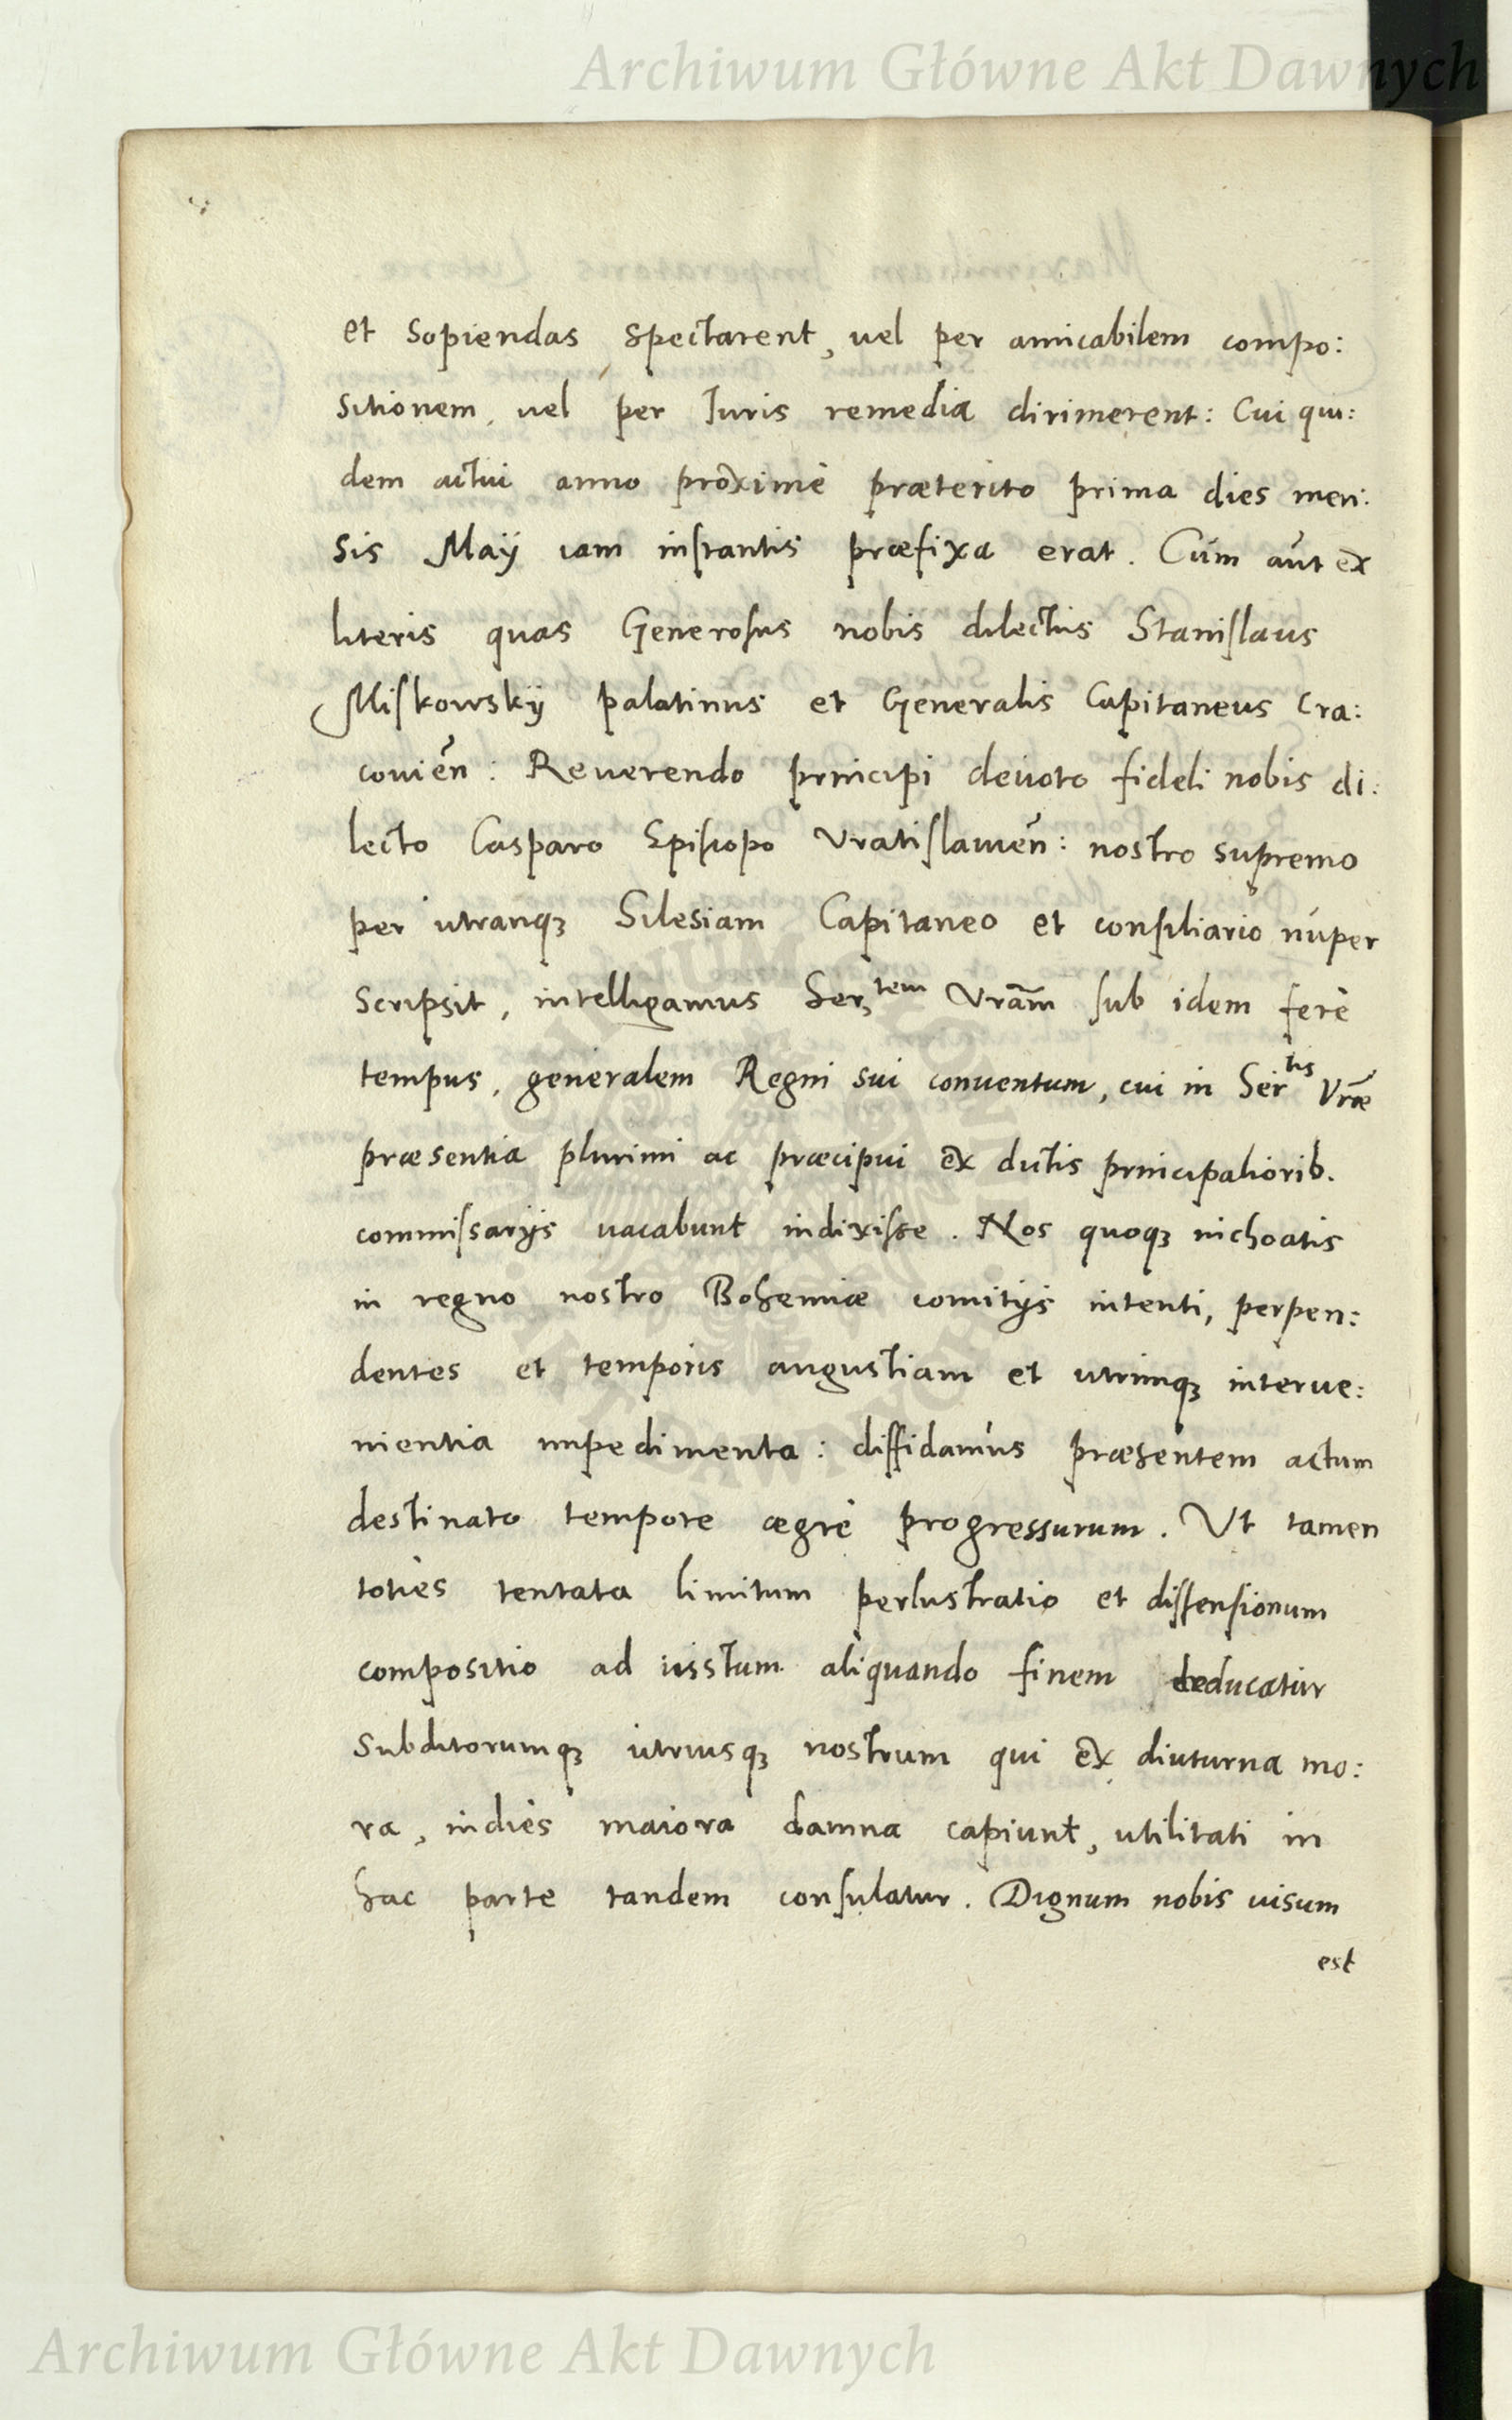 Archiwum Główne Akt Dawnych
et sopiendas spectarent, uel per amicabilem compo:
sitionem, uel per Iuris remedia dirimerent: Cui qui:
dem actui anno proximè præterito prima dies men:
sis Maÿ iam instantis præfixa erat. Cùm aut̃ ex
literis quas Generosus nobis dilectus Stanislaus
Miskowskÿ palatinus et Generalis Capitaneus Cra:
couień: Reuerendo principi deuoto fideli nobis di:
lecto Casparo Episcopo Vratislauień: nostro supremo
per utranqꝫ Silesiam Capitaneo et consiliario nuper
scripsit, intelligamus Serᵗᵉᵐ Vrãm sub idem ferè
tempus, generalem Regni sui conuentum, cui in Serᵗⁱˢ Vræ̃
præsentia plurimi ac præcipui ex dictis principaliorib.
commissarÿs uacabunt indixisse. Nos quoqꝫ inchoatis
in regno nostro Bohemiæ comitÿs intenti, perpen:
dentes et temporis angustiam et utrinqꝫ interue:
nientia impedimenta: diffidamus præsentem actum
destinato tempore ægrè progressurum. Vt tamen
toties tentata limitum perlustratio et dissensionum
compositio ad iustum aliquando finem deducatur
subditorumqꝫ utriusqꝫ nostrum qui ex diuturna mo:
ra, indies maiora damna capiunt, utilitati in
hac parte tandem consulatur. Dignum nobis uisum
est
Archiwum Główne Akt Dawnych